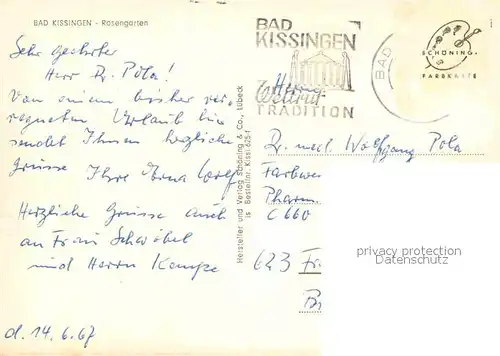 BAD KISSINGEN - Rosengarten
Sehr geehrter
Herr Dr. Pola!
Von einem bisher ver-
regneten Urlaub
sendet Ihnen herzliche
Grüsse Ihre Erna
Herzliche Grüsse auch
an Frau Schwibel
und Herrn Kempe
d. 14.6.67
Hersteller und Verlag Schöning & Co., Lübeck
Bestellnr. Kissi 625-f
BAD
KISSINGEN
Weltruf
TRADITION
BAD
SCHÖNING-
FARBKARTE
Herrn
Dr. med. Wolfgang Pola
Farbwer
Pharm.
C 660
623 Fr
privacy protection
media.oldthing.de